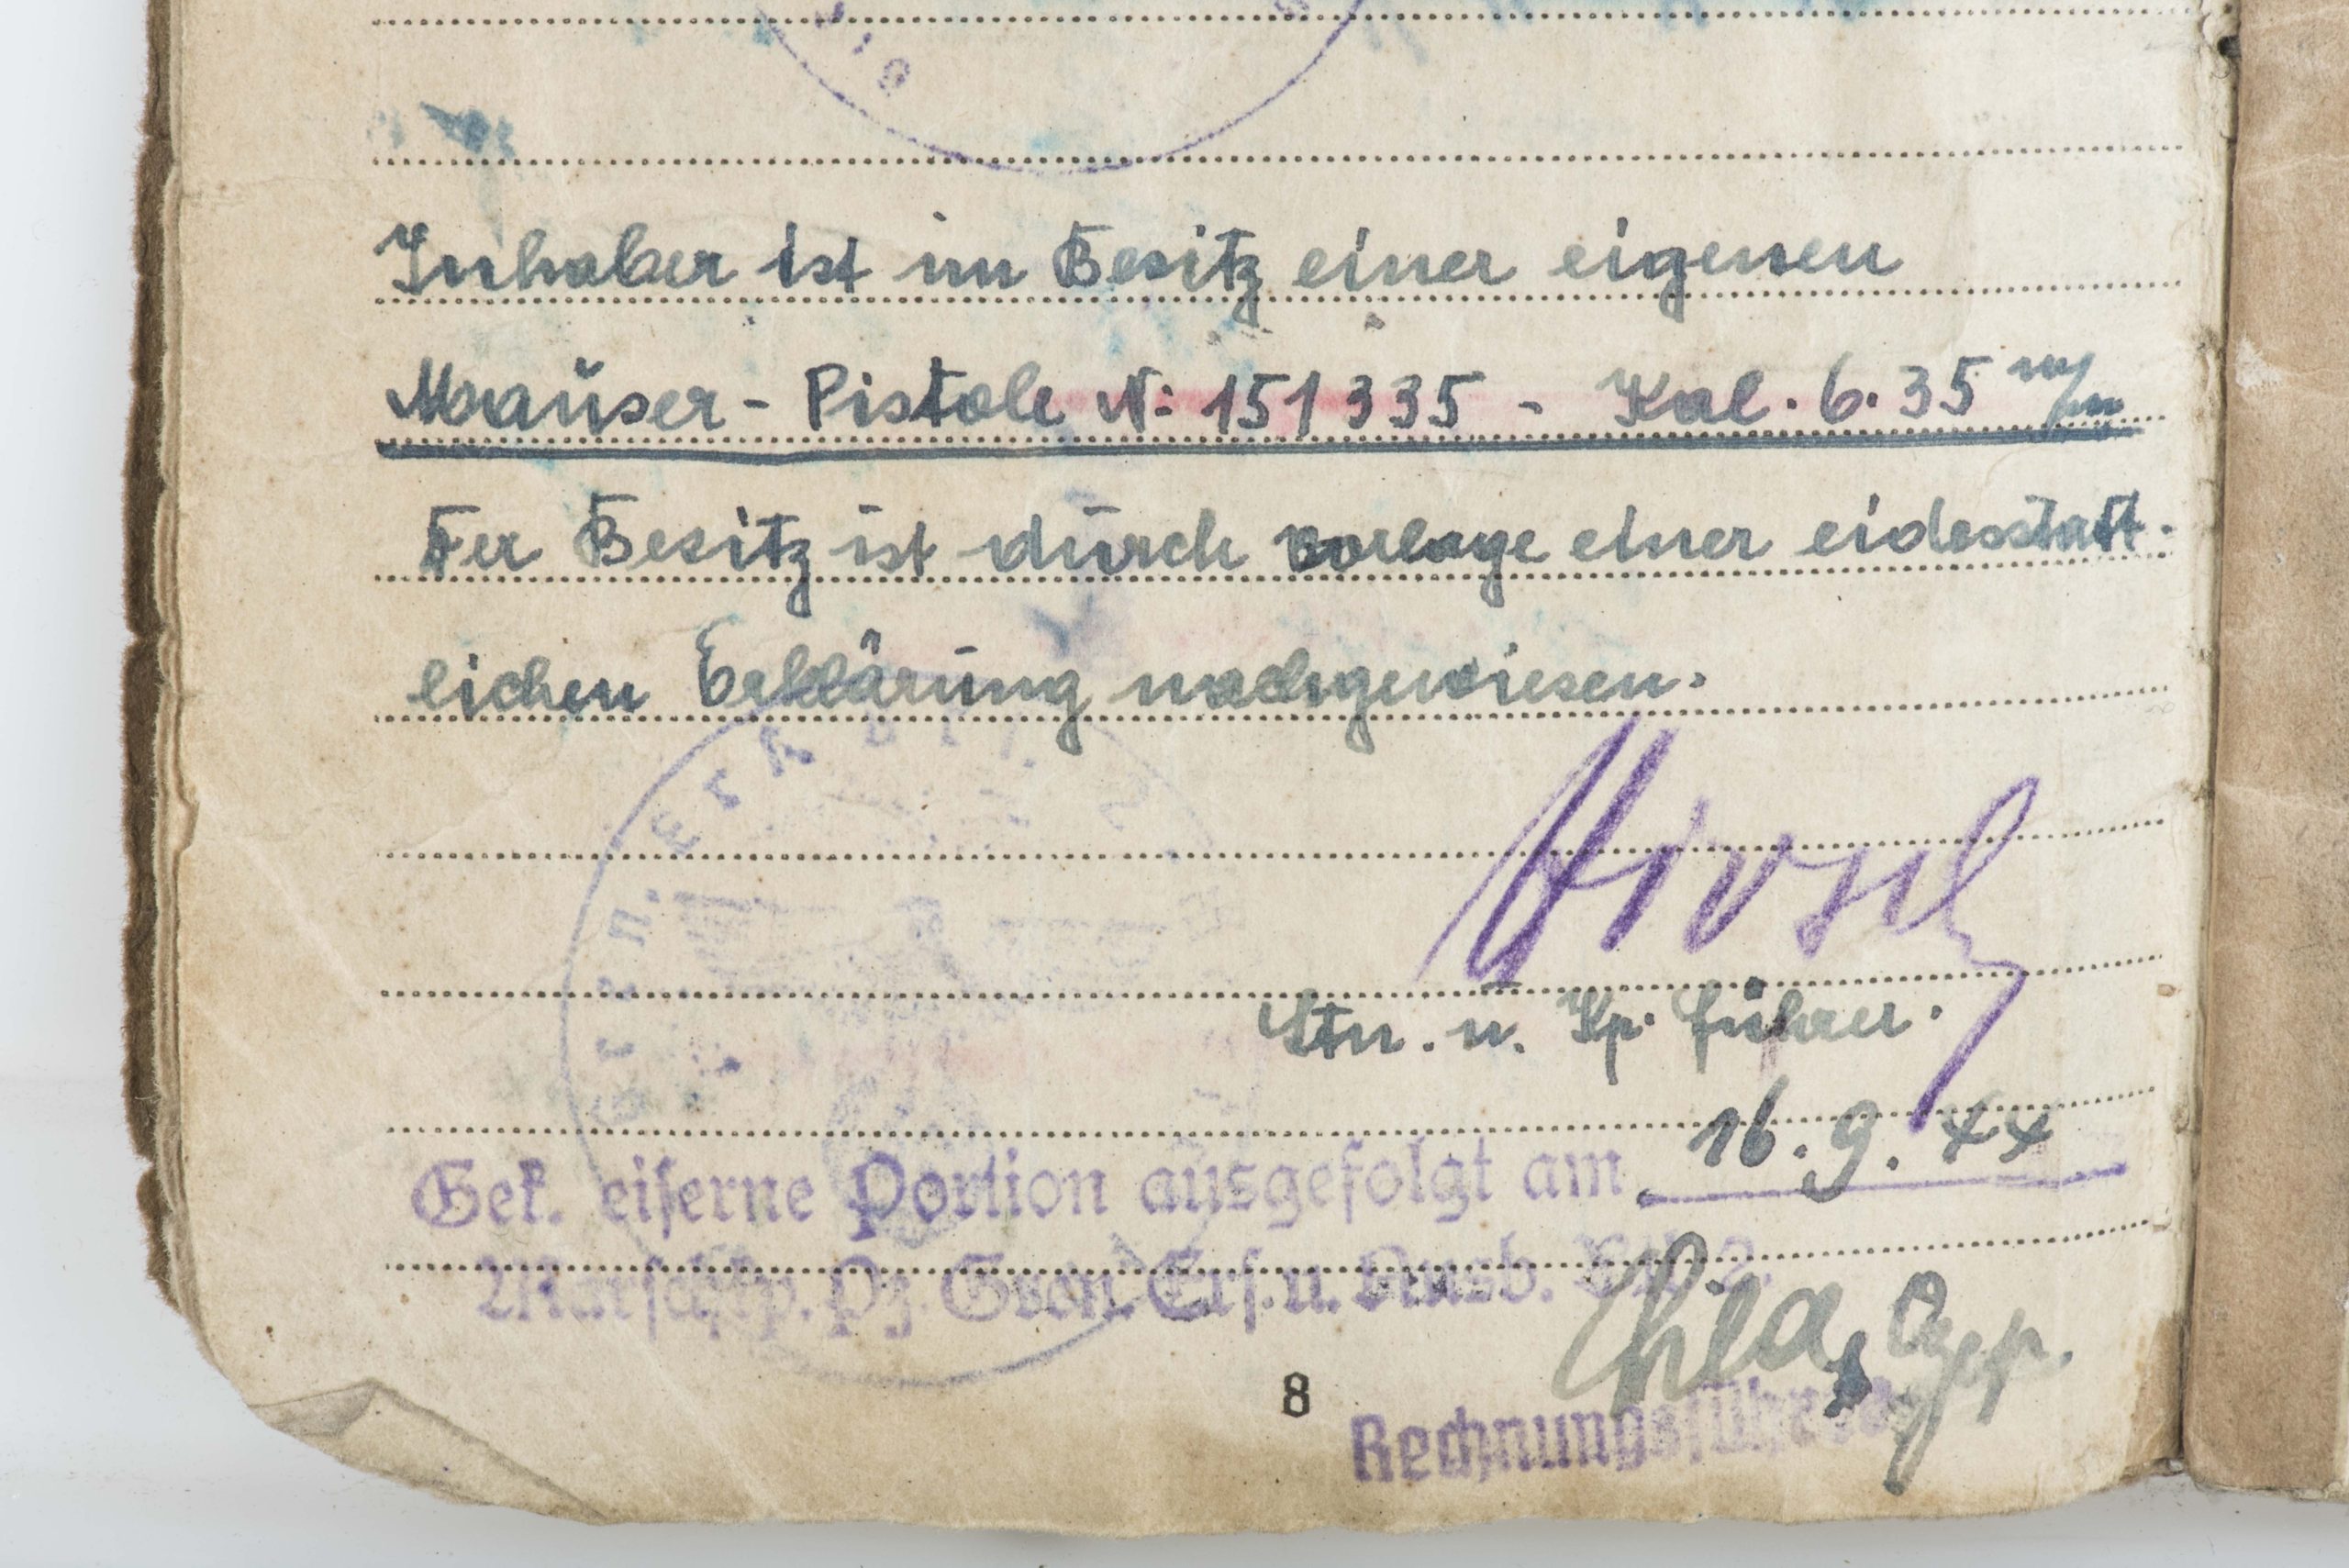 Inhaber ist im Besitz einer eigenen
Mauser - Pistole N: 151335 - Kal. 6.35 m/m
Der Besitz ist durch Vorlage einer eidesstatt-
lichen Erklärung nachgewiesen.
Ltn. u. Kp. führer.
16.9.44
Gek. eiserne Portion ausgefolgt am
Marschkp. Pz. Gren. Ers. u. Ausb. Btl. 2
8
Rechnungsführer